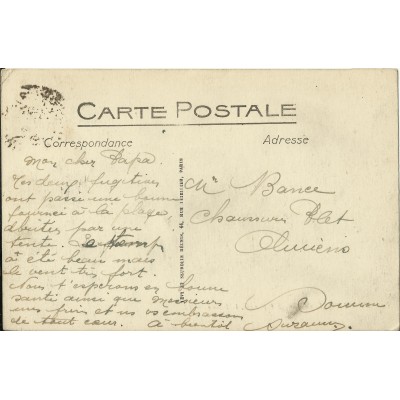 CARTE POSTALE
Correspondance
Adresse
Mon cher Papa.
Tes deux fugitives
ont passé une bonne
journée à la plage
abritées par une
tente. Le temp
a été beau mais
le vent très fort.
Nous t'esperons en bonne
santé ainsi que Monsieur
et vs embrassons
de tout cœur. A bientôt
Mr Bance
Chaussures
Amiens
Suzanne